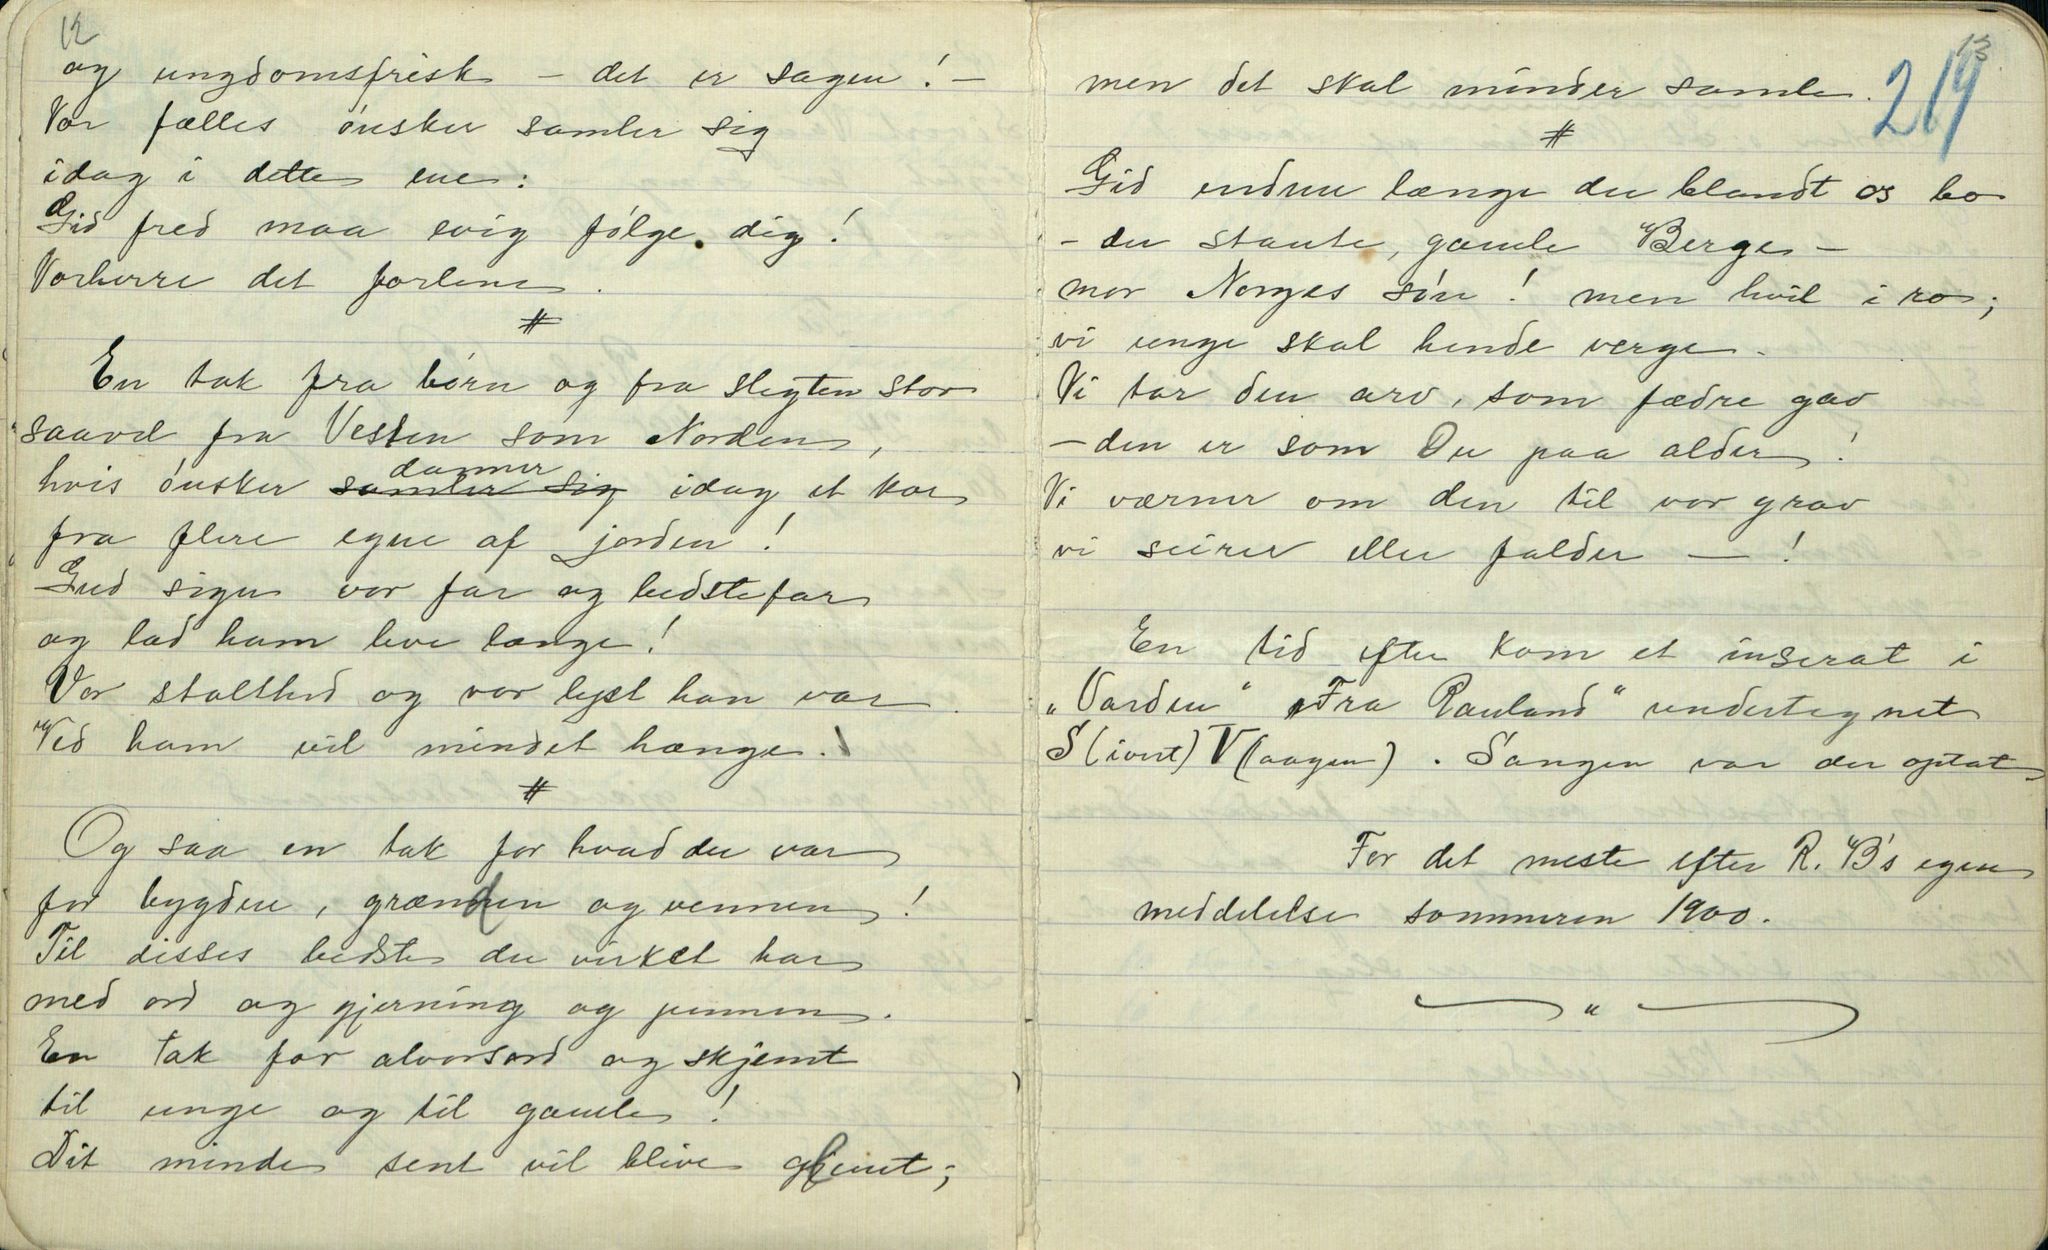 12
og ungdomsfrisk – det er sagen! –
Vor fælles ønsker samler sig
idag i dette ene:
Gid fred maa evig følge dig!
Vorherre det forlene.
#
En tak fra børn og fra slegten stor
saavel fra Vesten som Norden,
hvis ønsker samler sig danner idag et kor
fra flere egne af jorden!
Gud signe vor far og bedstefar
og lad ham leve længe!
Vor stolthed og vor lyst han var
Ved ham vil mindet hænge.
#
Og saa en tak for hvad du var
for bygden, grænden og vennen!
Til disses bedste du virket har
med ord og gjerning og pennen.
En tak for alvorsord og skjemt
til unge og til gamle!
Dit minde sent vil blive glemt;
13
219
men det skal minder samle.
#
Gid endnu længe du blandt os bo
– du staute, gamle Berge –
mor Norges søn! men hvil i ro;
vi unge skal hende verge.
Vi tar den arv, som fædre gav
– den er som Du paa alder!
Vi værner om den til vor grav
vi seirer eller falder – !
En tid efter kom et inserat i
„Varden“ „Fra Rauland“ undertegnet
S(ivert) V(aagen). Sangen var der optat
For det meste efter R. B's egen
meddelelse sommeren 1900.
"